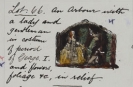 Lot 66. An Arbour with
a lady and
gentleman
in costume
of period
of George I.
and flowers,
foliage &c. in relief